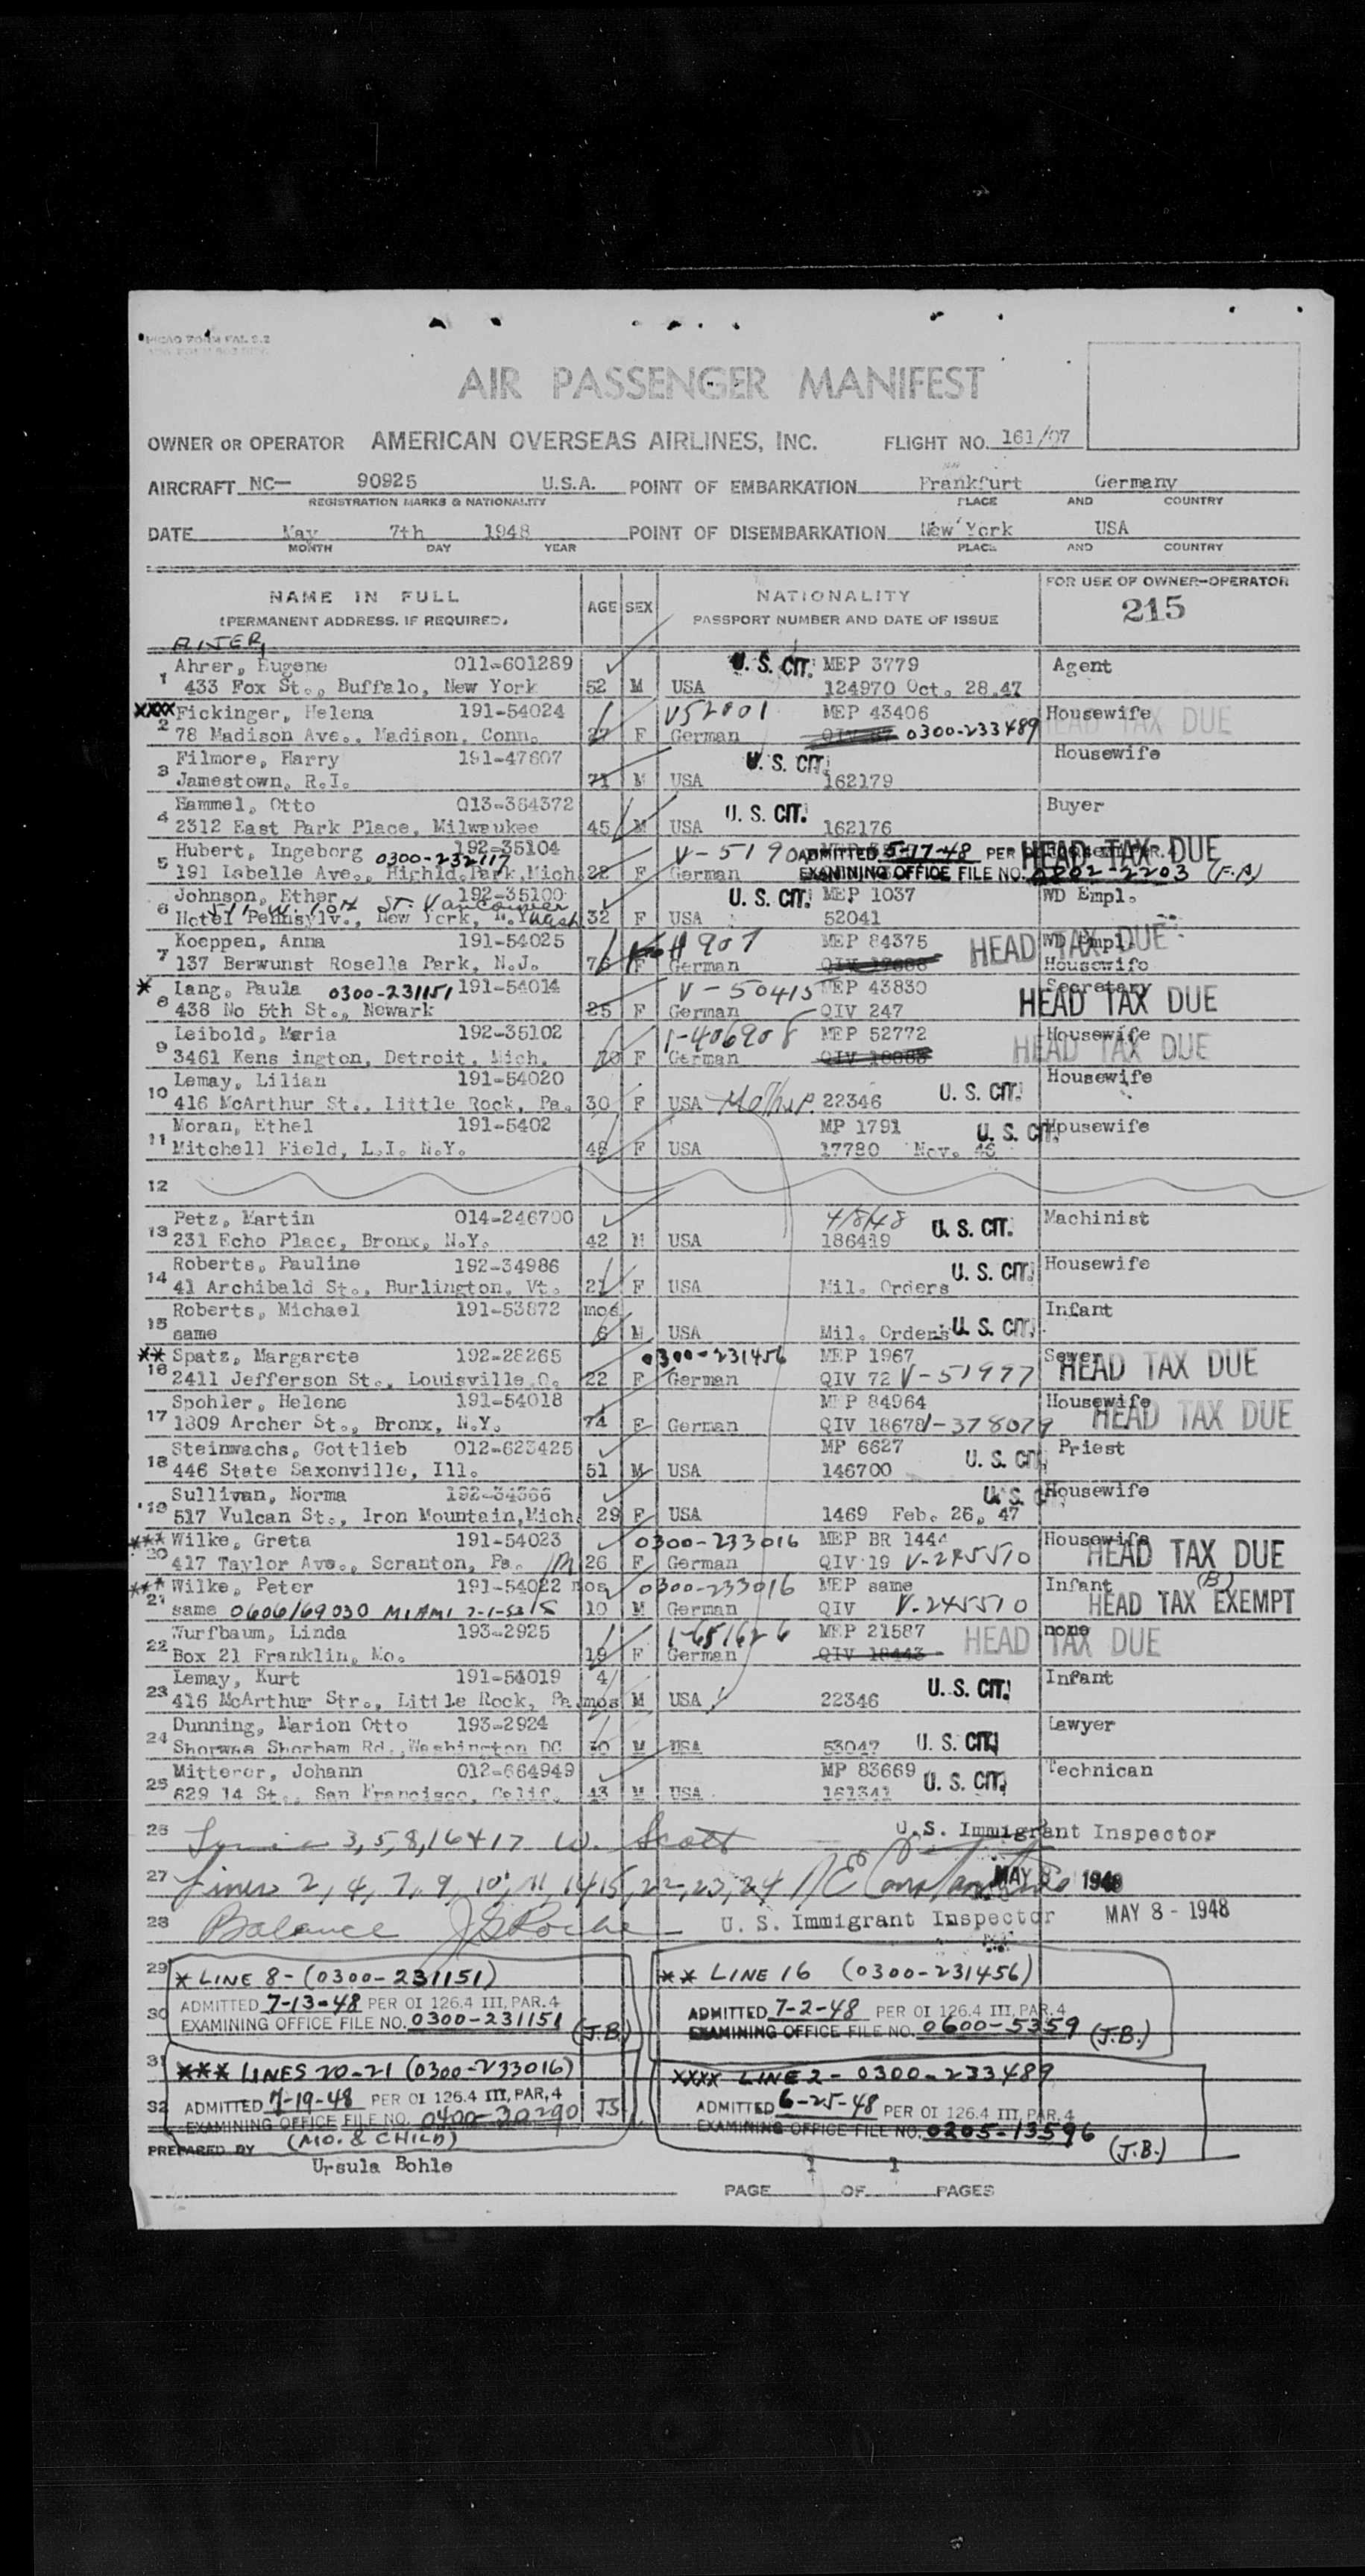 ICAO FORM FAL 2.2
AIR PASSENGER MANIFEST
OWNER OR OPERATOR AMERICAN OVERSEAS AIRLINES, INC. FLIGHT NO. 161/07
AIRCRAFT NC— 90925 U.S.A. POINT OF EMBARKATION Frankfurt Germany
REGISTRATION MARKS & NATIONALITY PLACE AND COUNTRY
DATE May 7th 1948 POINT OF DISEMBARKATION New York USA
MONTH DAY YEAR PLACE AND COUNTRY
NAME IN FULL AGE SEX NATIONALITY FOR USE OF OWNER-OPERATOR
(PERMANENT ADDRESS, IF REQUIRED) PASSPORT NUMBER AND DATE OF ISSUE 215
1 Ahrer, Eugene 011-601289 U. S. CIT. MEP 3779 Agent
433 Fox St., Buffalo, New York 52 M USA 124970 Oct. 28.47
XXXX 2 Fickinger, Helena 191-54024 V52001 MEP 43406 Housewife
78 Madison Ave., Madison, Conn. F German 0300-233489 HEAD TAX DUE
3 Filmore, Harry 191-47807 U. S. CIT. Housewife
Jamestown, R.I. 71 M USA 162179
4 Hammel, Otto 013-364372 U. S. CIT. Buyer
2312 East Park Place, Milwaukee 45 M USA 162176
5 Hubert, Ingeborg 0300-232117 192-35104 V-5190 ADMITTED 5-17-48 PER HEAD TAX DUE
191 Labelle Ave., Highld.Park,Mich 22 F German EXAMINING OFFICE FILE NO. 0802-2203 (F.A)
6 Johnson, Ether 192-35100 U. S. CIT. MEP 1037 WD Empl.
511 W. 10th ST. Vancouver Wash
Hotel Pennsylv., New York, N.Y. 32 F USA 52041
7 Koeppen, Anna 191-54025 MEP 84375 WD Empl. HEAD TAX DUE
137 Berwunst Rosella Park, N.J. F German Housewife
* 8 Lang, Paula 0300-231151 191-54014 V-50415 MEP 43830 Secretary
438 No 5th St., Newark 25 F German QIV 247 HEAD TAX DUE
9 Leibold, Maria 192-35102 1-406908 MEP 52772 Housewife
3461 Kens ington, Detroit, Mich. F German HEAD TAX DUE
10 Lemay, Lilian 191-54020 U. S. CIT. Housewife
416 McArthur St., Little Rock, Pa. 30 F USA Mother 22346
11 Moran, Ethel 191-5402 MP 1791 U. S. CIT. Housewife
Mitchell Field, L.I. N.Y. 48 F USA 17780 Nov. 46
12
13 Petz, Martin 014-246700 4/8/48 U. S. CIT. Machinist
231 Echo Place, Bronx, N.Y. 42 M USA 186419
14 Roberts, Pauline 192-34986 U. S. CIT. Housewife
41 Archibald St., Burlington, Vt. 21 F USA Mil. Orders
15 Roberts, Michael 191-53872 mos Infant
same 6 M USA Mil. Orders U. S. CIT.
** 16 Spatz, Margarete 192-28265 0300-231456 MEP 1967 Sewer
2411 Jefferson St., Louisville.O. 22 F German QIV 72 V-51977 HEAD TAX DUE
17 Spohler, Helene 191-54018 MEP 84964 Housewife
1309 Archer St., Bronx, N.Y. 74 F German QIV 18678 1-378079 HEAD TAX DUE
18 Steinwachs, Gottlieb 012-623425 MP 6627 U. S. CIT. Priest
446 State Saxonville, Ill. 51 M USA 146700
19 Sullivan, Norma 192-34366 U. S. CIT. Housewife
517 Vulcan St., Iron Mountain,Mich. 29 F USA 1469 Feb. 26, 47
*** 20 Wilke, Greta 191-54023 0300-233016 MEP BR 1444 Housewife
417 Taylor Ave., Scranton, Pa. 26 F German QIV 19 V-245510 HEAD TAX DUE
*** 21 Wilke, Peter 191-54022 mos 0300-233016 MEP same Infant (B)
same 0606/69030 MIAMI 10 M German QIV V-245510 HEAD TAX EXEMPT
22 Wurfbaum, Linda 193-2925 MEP 21587 none
Box 21 Franklin, Mo. 19 F German HEAD TAX DUE
23 Lemay, Kurt 191-54019 4 Infant
416 McArthur Str., Little Rock, Pa. mos M USA 22346 U. S. CIT.
24 Dunning, Marion Otto 193-2924 Lawyer
Shorham Rd., Washington DC M USA 53047 U. S. CIT.
25 Mitterer, Johann 012-664949 MP 83669 Technican
829 14 St., San Francisco, Calif. 43 M USA 161341 U. S. CIT.
26 3, 5, 8, 16 + 17 W. Scott U.S. Immigrant Inspector
27 Lines 2, 4, 7, 9, 10, 11, 14 15, 22, 23, 24 MAY 8 1948
28 Balance U. S. Immigrant Inspector MAY 8 - 1948
29 * LINE 8- (0300-231151) ** LINE 16 (0300-231456)
30 ADMITTED 7-13-48 PER OI 126.4 III, PAR. 4 ADMITTED 7-2-48 PER OI 126.4 III, PAR. 4
EXAMINING OFFICE FILE NO. 0300-231151 (J.B.) EXAMINING OFFICE FILE NO. 0600-5359 (J.B.)
31 *** LINES 20-21 (0300-233016) XXXX LINE 2 - 0300-233489
32 ADMITTED 7-19-48 PER OI 126.4 III, PAR. 4 JS ADMITTED 6-25-48 PER OI 126.4 III, PAR. 4
EXAMINING OFFICE FILE NO. 0400-30290 EXAMINING OFFICE FILE NO. 0205-13596 (J.B.)
PREPARED BY (MO. & CHILD)
Ursula Bohle
PAGE 1 OF 1 PAGES